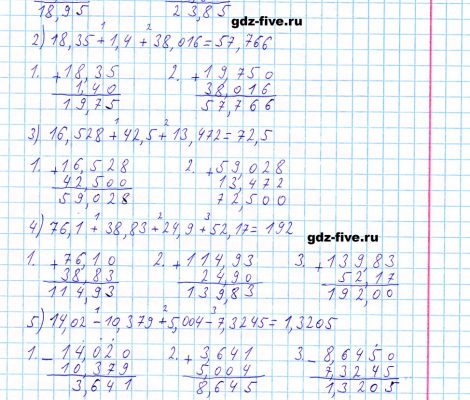 18,95 23,85
gdz-five.ru
2) 18,35 + 1,4 + 38,016 = 57,766
1 2
1. + 18,35 2. + 19,750
1,40 38,016
19,75 57,766
3) 16,528 + 42,5 + 13,472 = 72,5
1 2
1. + 16,528 2. + 59,028
42,500 13,472
59,028 72,500
gdz-five.ru
4) 76,1 + 38,83 + 24,9 + 52,17 = 192
1 2 3
1. + 76,10 2. + 114,93 3. + 139,83
38,83 24,90 52,17
114,93 139,83 192,00
5) 14,02 - 10,379 + 5,004 - 7,3245 = 1,3205
1 2 3
1. - 14,020 2. + 3,641 3. - 8,6450
10,379 5,004 7,3245
3,641 8,645 1,3205